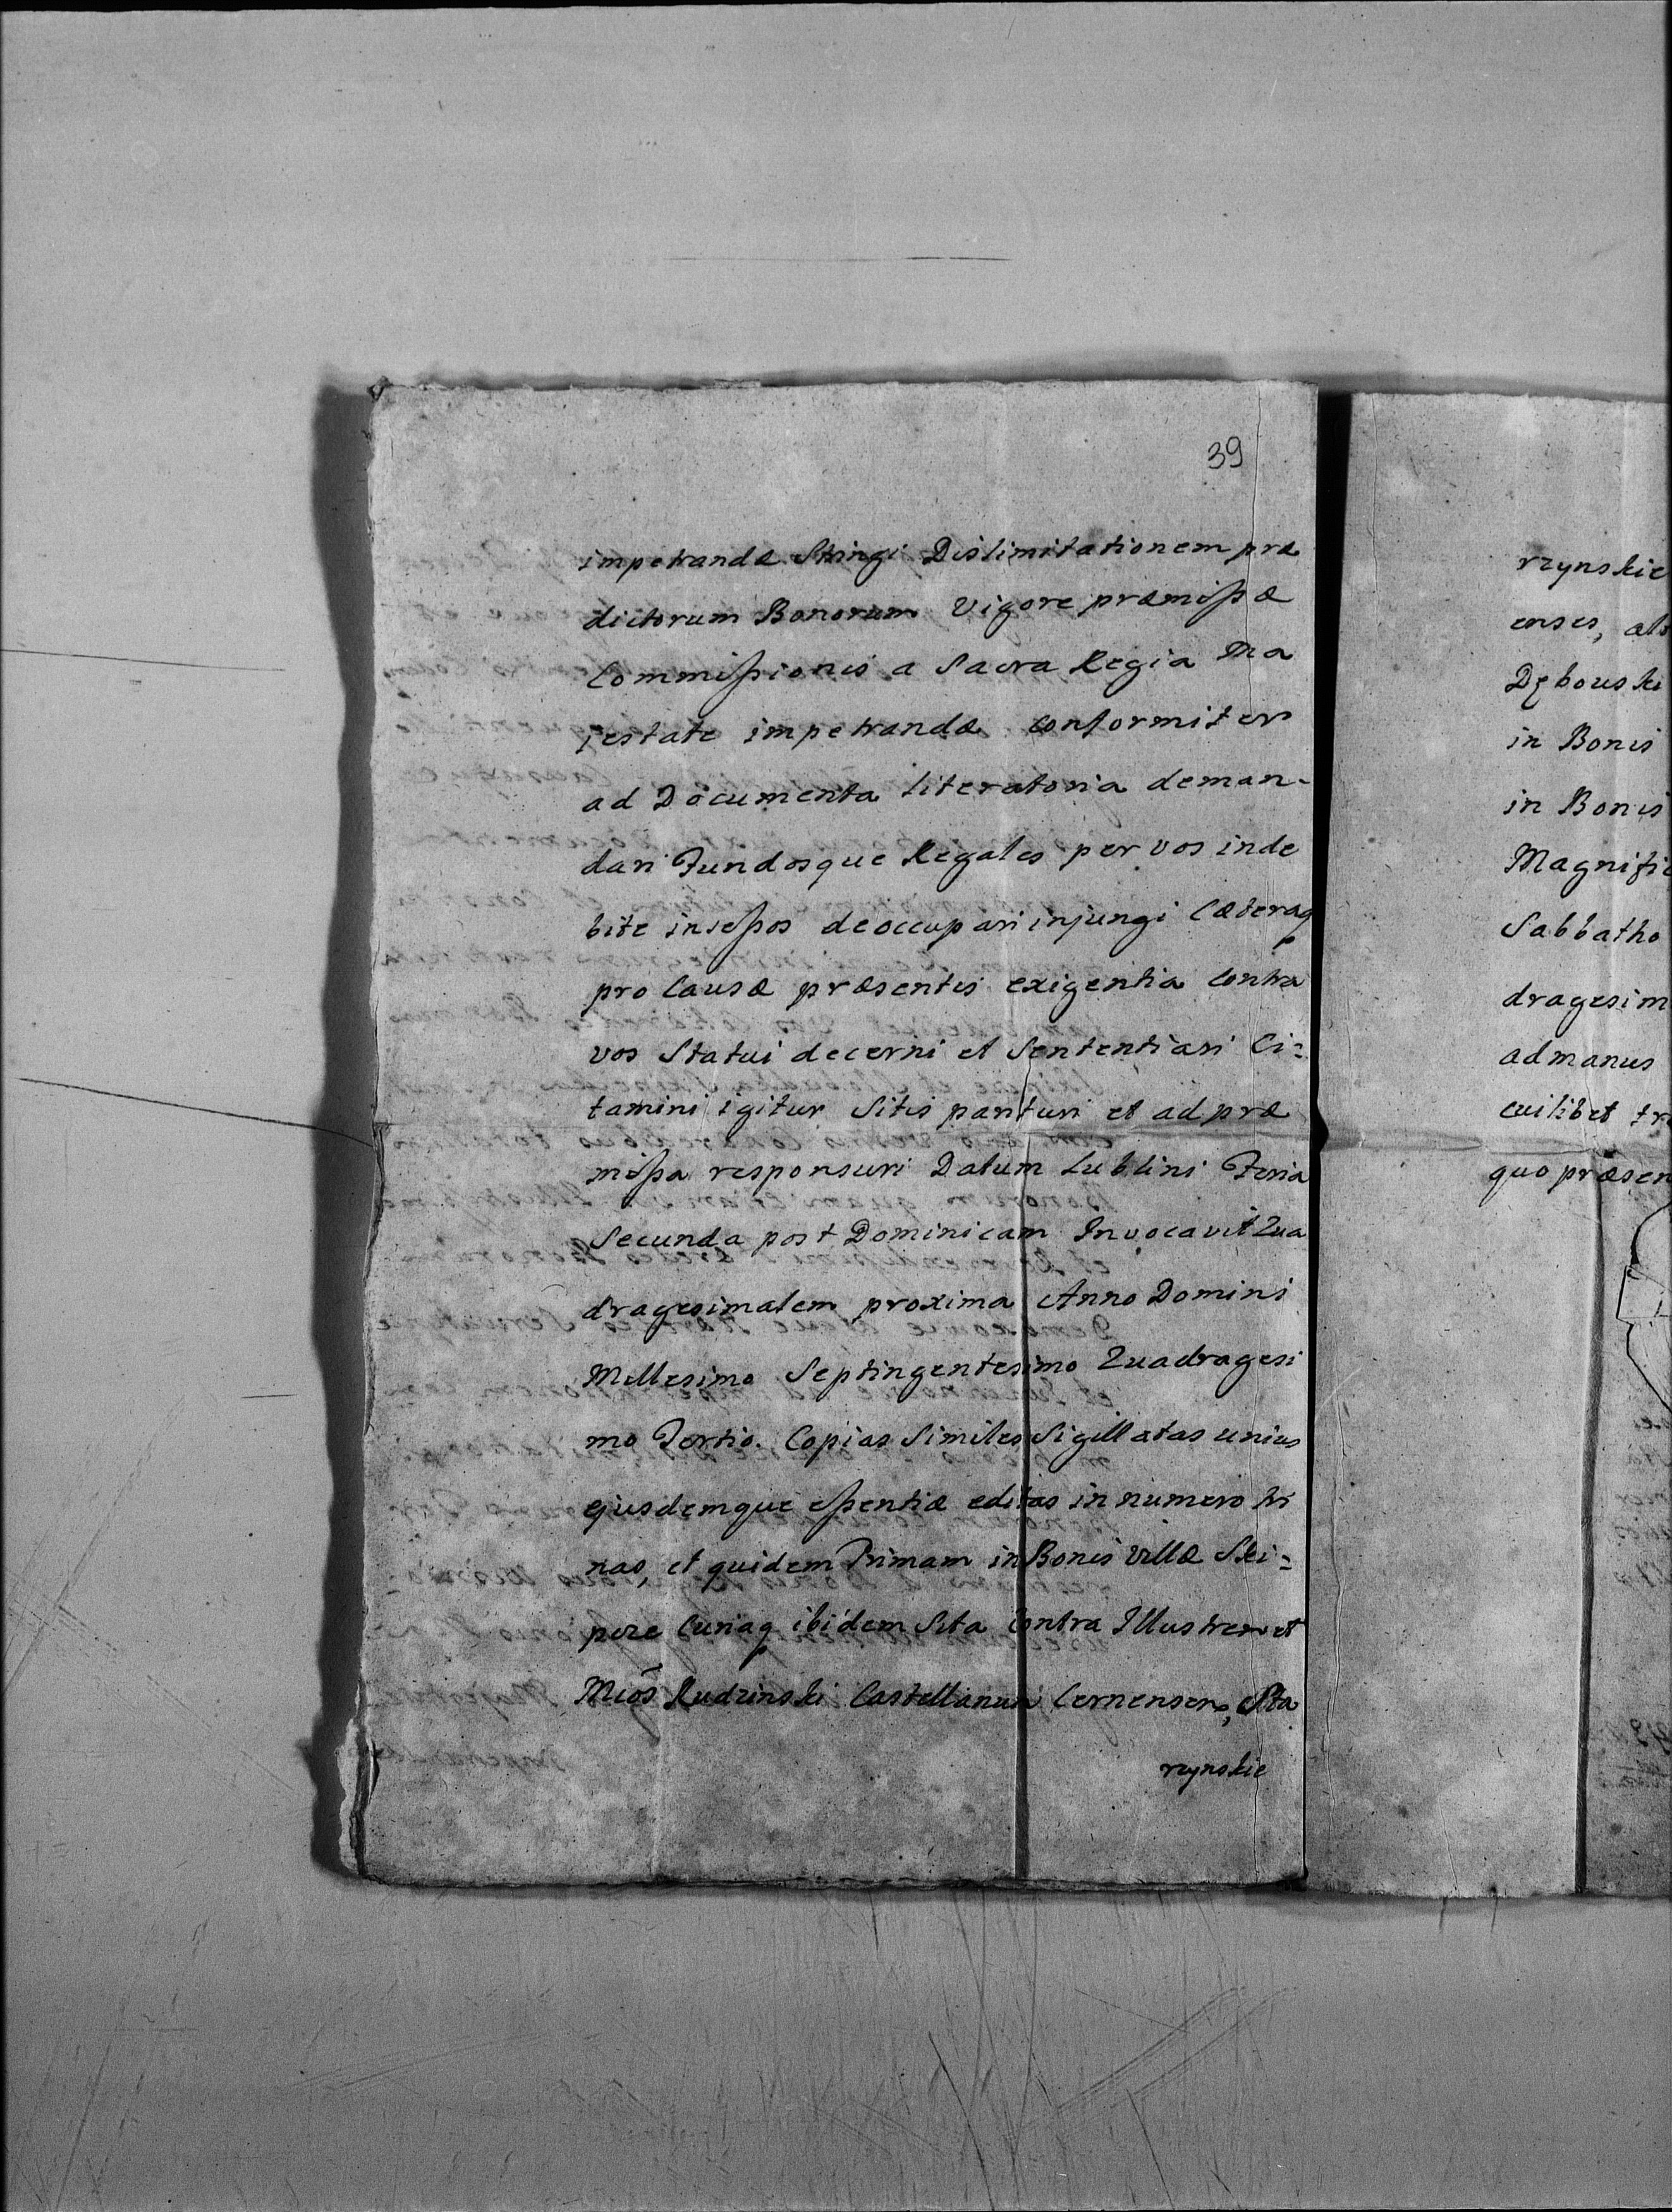 39
impetrandæ Stringi Dislimitationem præ
dictorum Bonorum Vigore præmissæ
Commissionis a Sacra Regia Ma
iestate impetrandæ conformiter
ad Documenta literatoria deman-
dari Fundosque Regales per vos inde
bite insessos deoccupari injungi Cæteraq
pro Causæ præsentis exigentia contra
vos Statui decerni et Sententiari Ci=
tamini igitur Sitis parituri et ad præ
missa responsuri Datum Lublini Feria
Secunda post Dominicam Invocavit Qua
dragesimalem proxima Anno Domini
Millesimo Septingentesimo Quadragesi
mo Tertio. Copias Similes Sigillatas unius
ejusdemque essentiæ editas in numero tri
nas, et quidem Primam in Bonis Villæ Ski=
pere Curiaq ibidem Sita Contra Illustrem et
Micos Rudzinski Castellanum Cernensem, Sta
rzynskie
rzynskie
enses, als
Dębouski
in Bonis
in Bonis
Magnific
Sabbatho
dragesim
ad manus
cuilibet tra
quo præsen